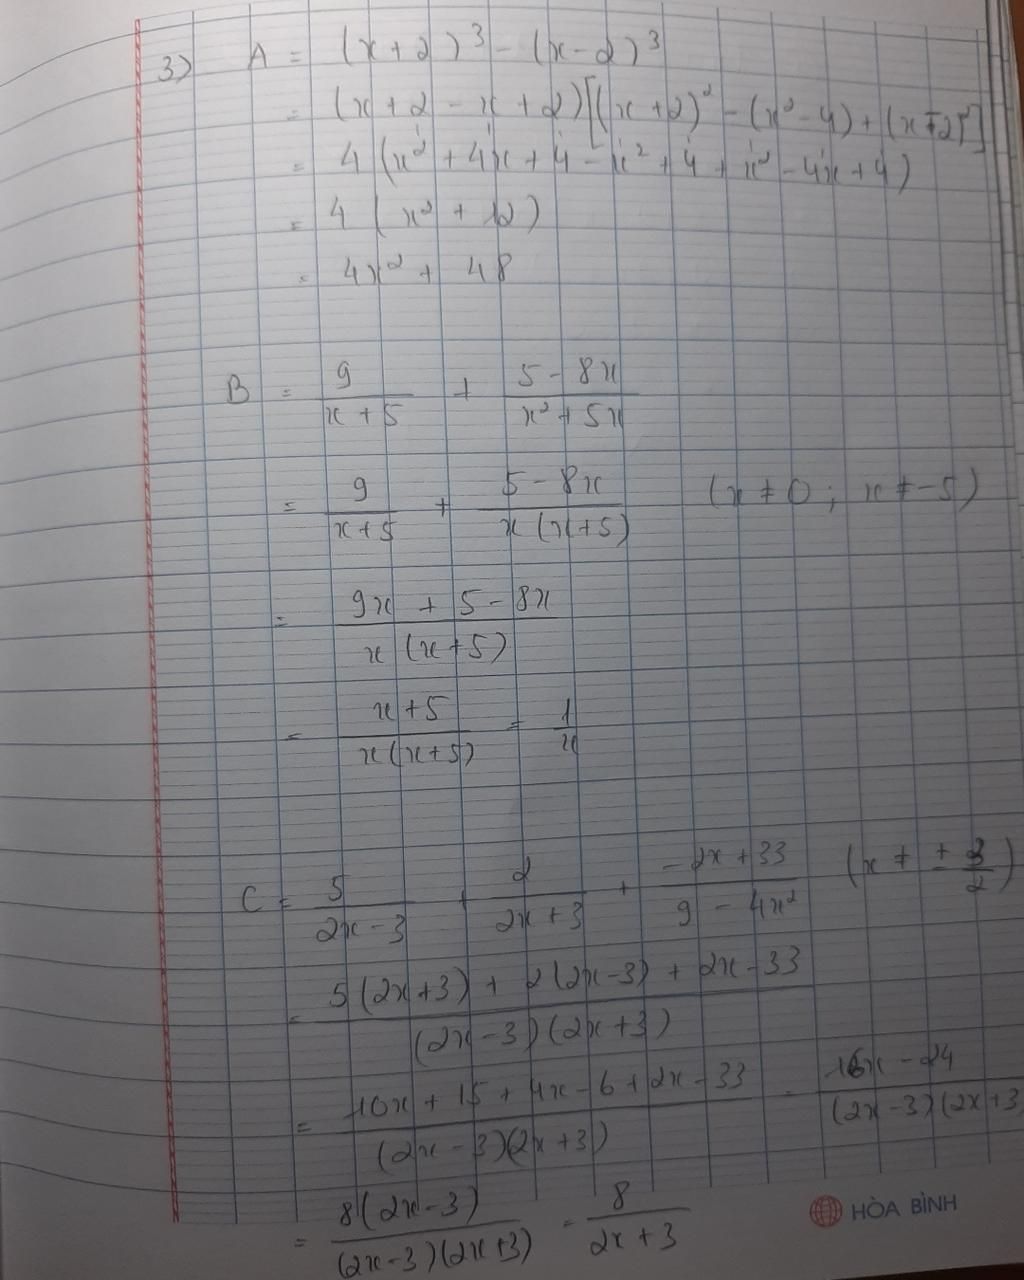 3) A = (x+2)³ - (x-2)³
= (x+2-x+2)[(x+2)² - (x²-4) + (x-2)²]
= 4 (x² + 4x + 4 - x² + 4 + x² - 4x + 4)
= 4 (x² + 12)
= 4x² + 48
B = 9/(x+5) + (5-8x)/(x²+5x)
= 9/(x+5) + (5-8x)/(x(x+5)) (x ≠ 0 ; x ≠ -5)
= (9x + 5 - 8x)/(x(x+5))
= (x+5)/(x(x+5)) = 1/x
C = 5/(2x-3) + 2/(2x+3) + (-2x+33)/(9-4x²) (x ≠ ± 3/2)
= (5(2x+3) + 2(2x-3) + 2x-33)/((2x-3)(2x+3))
= (10x + 15 + 4x - 6 + 2x - 33)/((2x-3)(2x+3)) = (16x - 24)/((2x-3)(2x+3
= 8(2x-3)/((2x-3)(2x+3)) = 8/(2x+3)
HÒA BÌNH